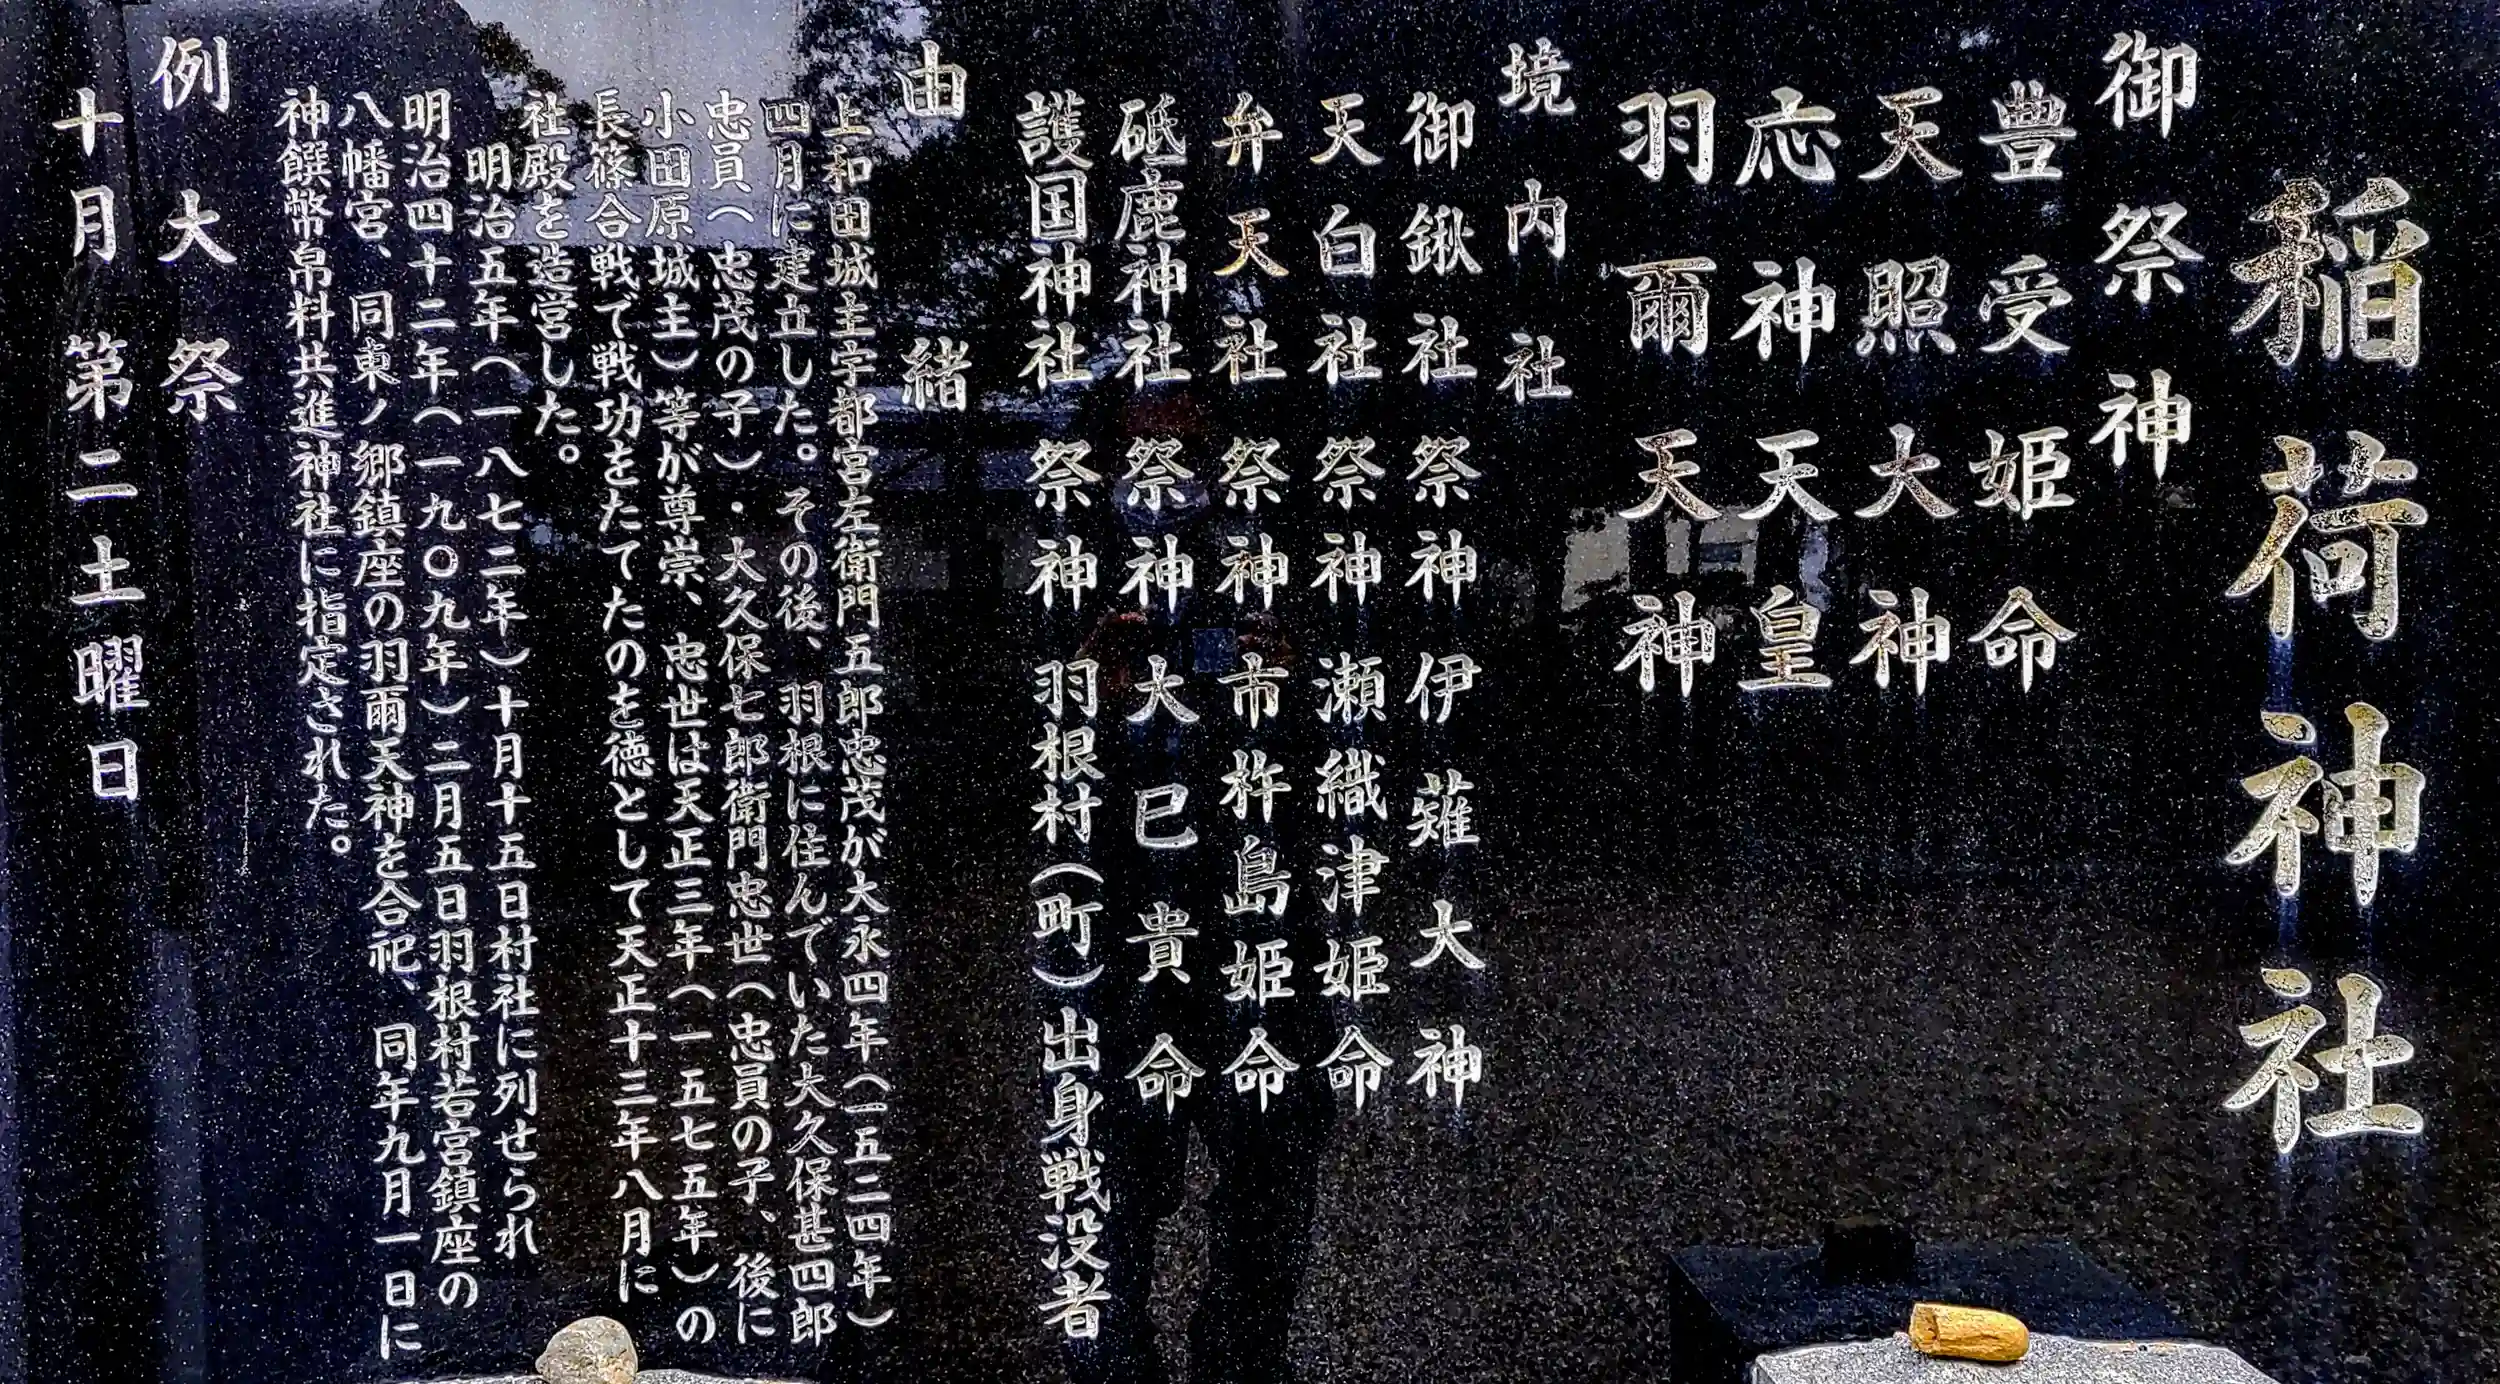 稲荷神社
御祭神
豊受姫命
天照大神
応神天皇
羽爾天神
境内社
御鍬社 祭神 伊薙大神
天白社 祭神 瀬織津姫命
弁天社 祭神 市杵島姫命
砥鹿神社 祭神 大巳貴命
護国神社 祭神 羽根村(町)出身戦没者
由緒
上和田城主宇都宮左衛門五郎忠茂が大永四年(一五二四年)
四月に建立した。その後、羽根に住んでいた大久保甚四郎
忠員(忠茂の子)・大久保七郎衛門忠世(忠員の子、後に
小田原城主)等が尊崇、忠世は天正三年(一五七五年)の
長篠合戦で戦功をたてたのを徳として天正十三年八月に
社殿を造営した。
明治五年(一八七二年)十月十五日村社に列せられ
明治四十二年(一九〇九年)二月五日羽根村若宮鎮座の
八幡宮、同東ノ郷鎮座の羽爾天神を合祀、同年九月一日に
神饌幣帛料共進神社に指定された。
例大祭
十月第二土曜日